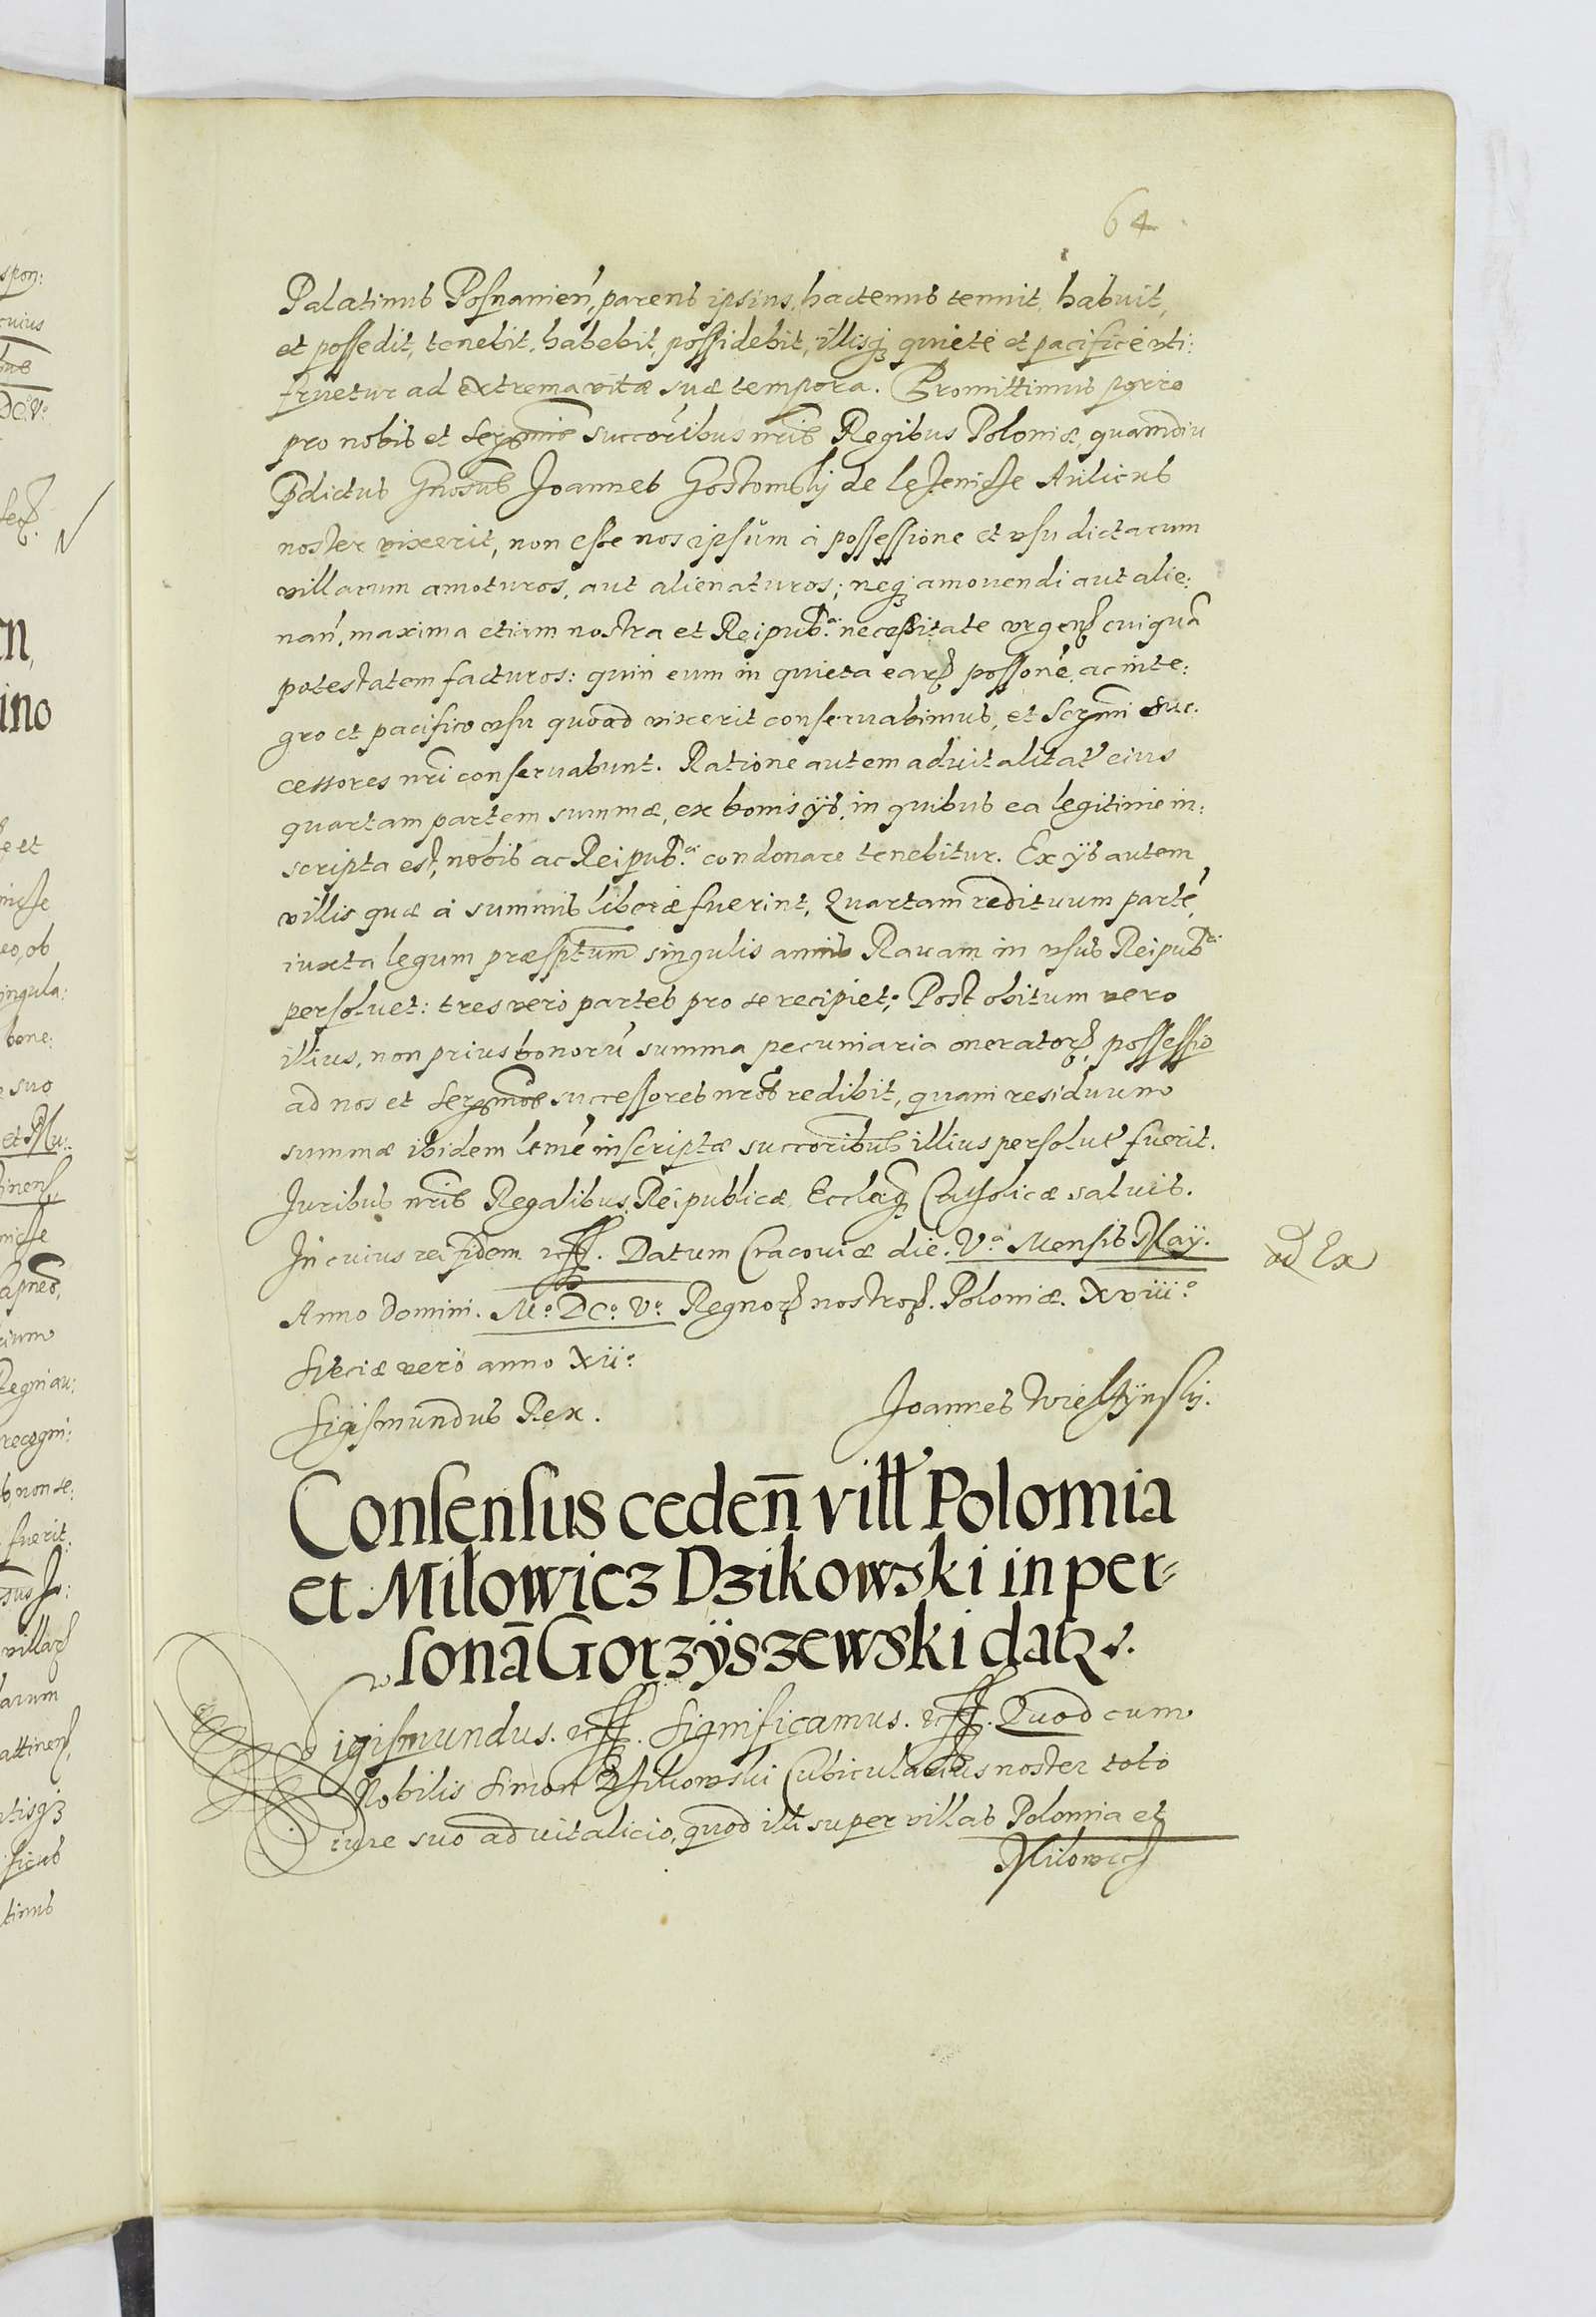 64
Palatinus Posnanien̄, parens ipsius, hactenus tenuit, habuit,
et possedit, tenebit, habebit, possidebit, illisqꝫ quiete et pacifice vti:
fruetur ad extrema vitæ suæ tempora. Promittimus porro
pro nobis et Serꝫmis succoribus nris Regibus Poloniæ, quamdiu
Pdictus Gnosus Joannes Gostomsky de Leżenicze Aulicus
noster vixerit, non esse nos ipsum à possessione et vsu dictarum
villarum amoturos, aut alienaturos; neqꝫ amouendi aut alie:
nan̄, maxima etiam nostra et Reipubcæ necessitate vrgen̄ cuiquā
potestatem facturos: quin eum in quieta earꝝ possone, ac inte:
gro et pacifico vsu quoad vixerit conseruabimus, et Serꝫmi suc:
cessores nri conseruabunt. Ratione autem aduitalitat eius
quartam partem summæ, ex bonis ijs, in quibus ea legitime in:
scripta est, nobis ac Reipubcæ condonare tenebitur. Ex ijs autem
villis quæ à summis liberæ fuerint, Quartam redituum partē,
iuxta legum præsptum singulis annis Rauam in vsus Reipubcæ
persoluet: tres vero partes pro se recipiet. Post obitum vero
illius, non prius bonorū summa pecuniaria oneratorꝝ possessio
ad nos et Serꝫmos successores nros redibit, quam residuum
summæ ibidem ltme inscriptæ succoribus illius persolut fuerit.
Juribus nris Regalibus, Reipublicæ, Ecclæqꝫ Catholicæ saluis.
In cuius rei fidem etc. Datum Cracouiæ die. Va Mensis Maij.
ad Ex
Anno Domini. Mo. DCo. Vo. Regnorꝝ nostroꝝ. Poloniæ. XVIIIo
Sueciæ vero anno XIIo
Sigismundus Rex. Joannes Wielżynsky.
Consensus ceden̄ vill Polomia
et Miłowicz Dzikowski in per-
sonā Gorzÿszewski datꝫ.
Sigismundus. etc. Significamus. etc. Quod cum
Nobilis Simon Dzikowski Cubicularius noster toto
iure suo aduitalicio, quod illi super villas Polomia et
Milowicz